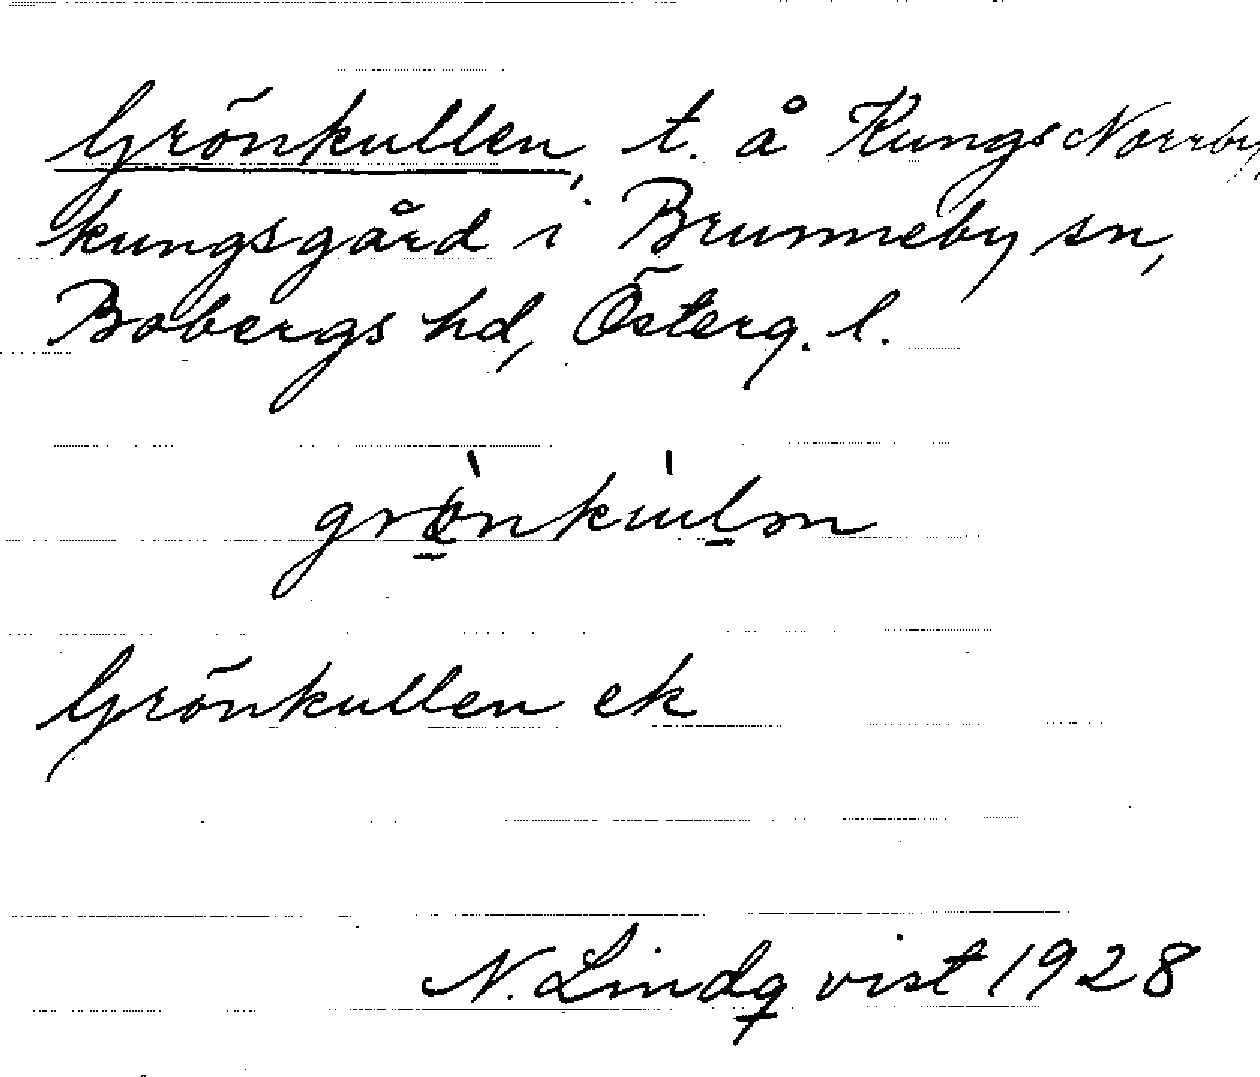 Grönkullen, t. å Kungs Norrby,
kungsgård i Brunneby sn,
Bobergs hd, Österg. l.
Grönkullen ek
N. Lindqvist 1928